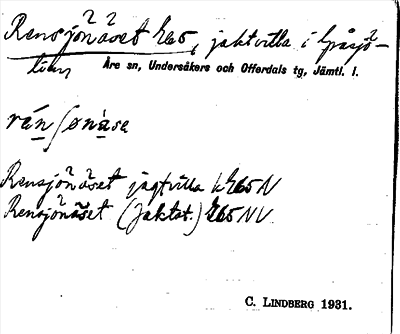 Rensjönäset 265, jaktvilla i Gråsjö-
Åre sn, Undersåkers och Offerdals tg, Jämtl. l.
rénʃønàsa
Rensjönäset jagtvilla k 265 N
Rensjönäset (Jaktst.) 265 NV.
C. LINDBERG 1931.